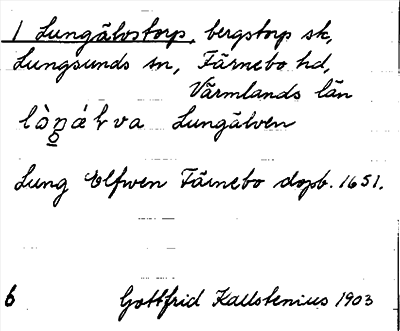 1 Lungälvstorp, bergstorp sk,
Lungsunds sn, Färnebo hd,
Värmlands län
Lungälven
Lung Elfwen Färnebo dopb. 1651.
6 Gottfrid Kallstenius 1903